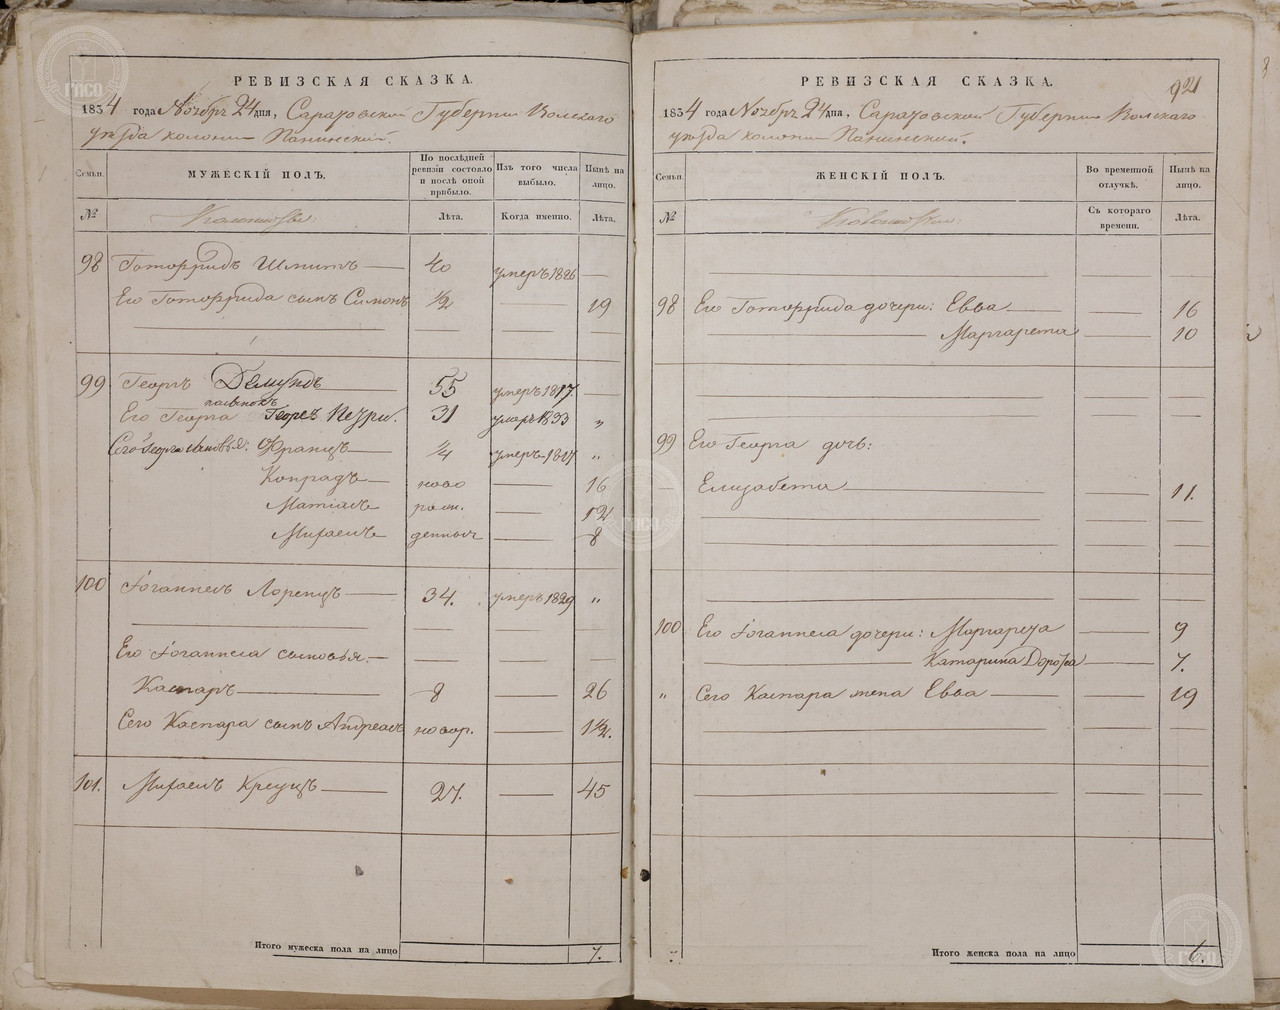 РЕВИЗСКАЯ СКАЗКА.
1834 года Ноябр 24 дня, Саратовской Губернии Волского
уезда колонии Панинской.
Семьи.
МУЖЕСКІЙ ПОЛЪ.
По послѣдней ревизіи состояло и послѣ оной прибыло.
Изъ того числа выбыло.
Нынѣ на лицо.
№
Колонисты:
Лѣта.
Когда именно.
Лѣта.
98 Готфридъ Шмитъ 40 умеръ 1826
Его Готфрида сынъ Симонъ 1/2 19
99 Георгъ 55 умеръ 1817
пасынокъ
Его Георга Георгъ Петри. 31 умеръ 1833 „
Сего Георга сыновья: Францъ 1/4 умеръ 1817 „
Конрадъ ново 16
Матіасъ рож. 12
Михаелъ денные 8
100 Іоганнесъ Лоренцъ 34. умеръ 1829 „
Его Іоганнеса сыновья.
Каспаръ 8 26
Сего Каспара сынъ Андреасъ новор. 1 1/2.
101. Михаелъ Крейцъ 27. 45
Итого мужеска пола на лицо 7.
РЕВИЗСКАЯ СКАЗКА.
921
1834 года Ноябр 24 дня, Саратовской Губернии Волского
уезда колонии Панинской.
Семьи.
ЖЕНСКІЙ ПОЛЪ.
Во временной отлучкѣ.
Нынѣ на лицо.
№
Съ котораго времени.
Лѣта.
98 Его Готфрида дочери: Евва 16
Маргарета 10
99 Его Георга дочь:
Елизабета 11.
100 Его Іоганнеса дочери: Маргарета 9
Катарина Доротеа 7.
„ Сего Каспара жена Евва 19
Итого женска пола на лицо 6.
ГАСО